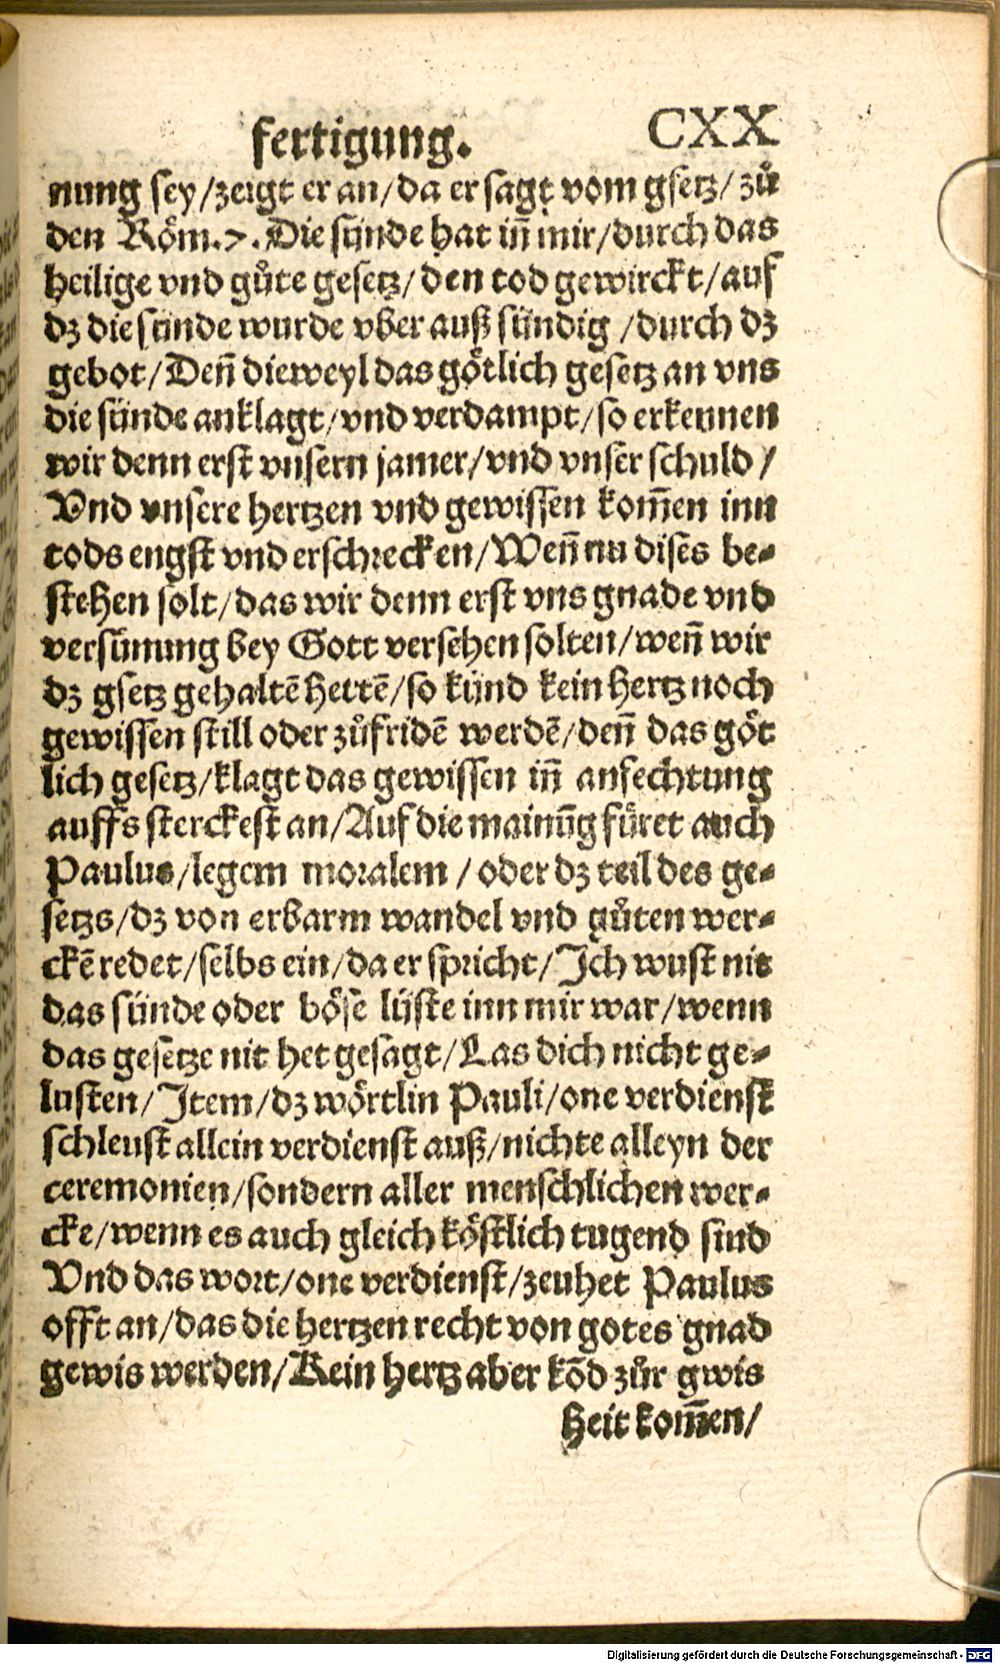 fertigung. CXX
nung sey/zeigt er an/da er sagt vom gsetz/ zů
den Röm.7. Die sünde hat iñ mir/durch das
heilige vnd gůte gesetz/den tod gewirckt/auf
dz die sünde wurde vber auß sündig /durch dz
gebot/Deñ dieweyl das götlich gesetz an vns
die sünde anklagt/vnd verdampt/so erkennen
wir denn erst vnsern jamer/vnd vnser schuld /
Vnd vnsere hertzen vnd gewissen kom̃en inn
tods engst vnd erschrecken/Weñ nu dises be-
stehen solt/das wir denn erst vns gnade vnd
versünung bey Gott versehen solten/weñ wir
dz gsetz gehaltẽ hettẽ/so künd kein hertz noch
gewissen still oder zůfridẽ werdẽ/deñ das göt
lich gesetz/klagt das gewissen iñ anfechtung
auffs sterckest an/Auf die mainũg füret auch
Paulus/legem moralem / oder dz teil des ge-
setzs/dz von erbarm wandel vnd gůten wer-
ckẽ redet/selbs ein/da er spricht/Ich wust nit
das sünde oder böse lüste inn mir war/wenn
das gesetze nit het gesagt/Las dich nicht ge-
lusten/Item/dz wörtlin Pauli/one verdienst
schleust allein verdienst auß/nichte alleyn der
ceremonien/sondern aller menschlichen wer-
cke/wenn es auch gleich köstlich tugend sind
Vnd das wort/one verdienst/zeuhet Paulus
offt an/das die hertzen recht von gotes gnad
gewis werden/Kein hertz aber kõd zůr gwis
heit kom̃en/
Digitalisierung gefördert durch die Deutsche Forschungsgemeinschaft - DFG